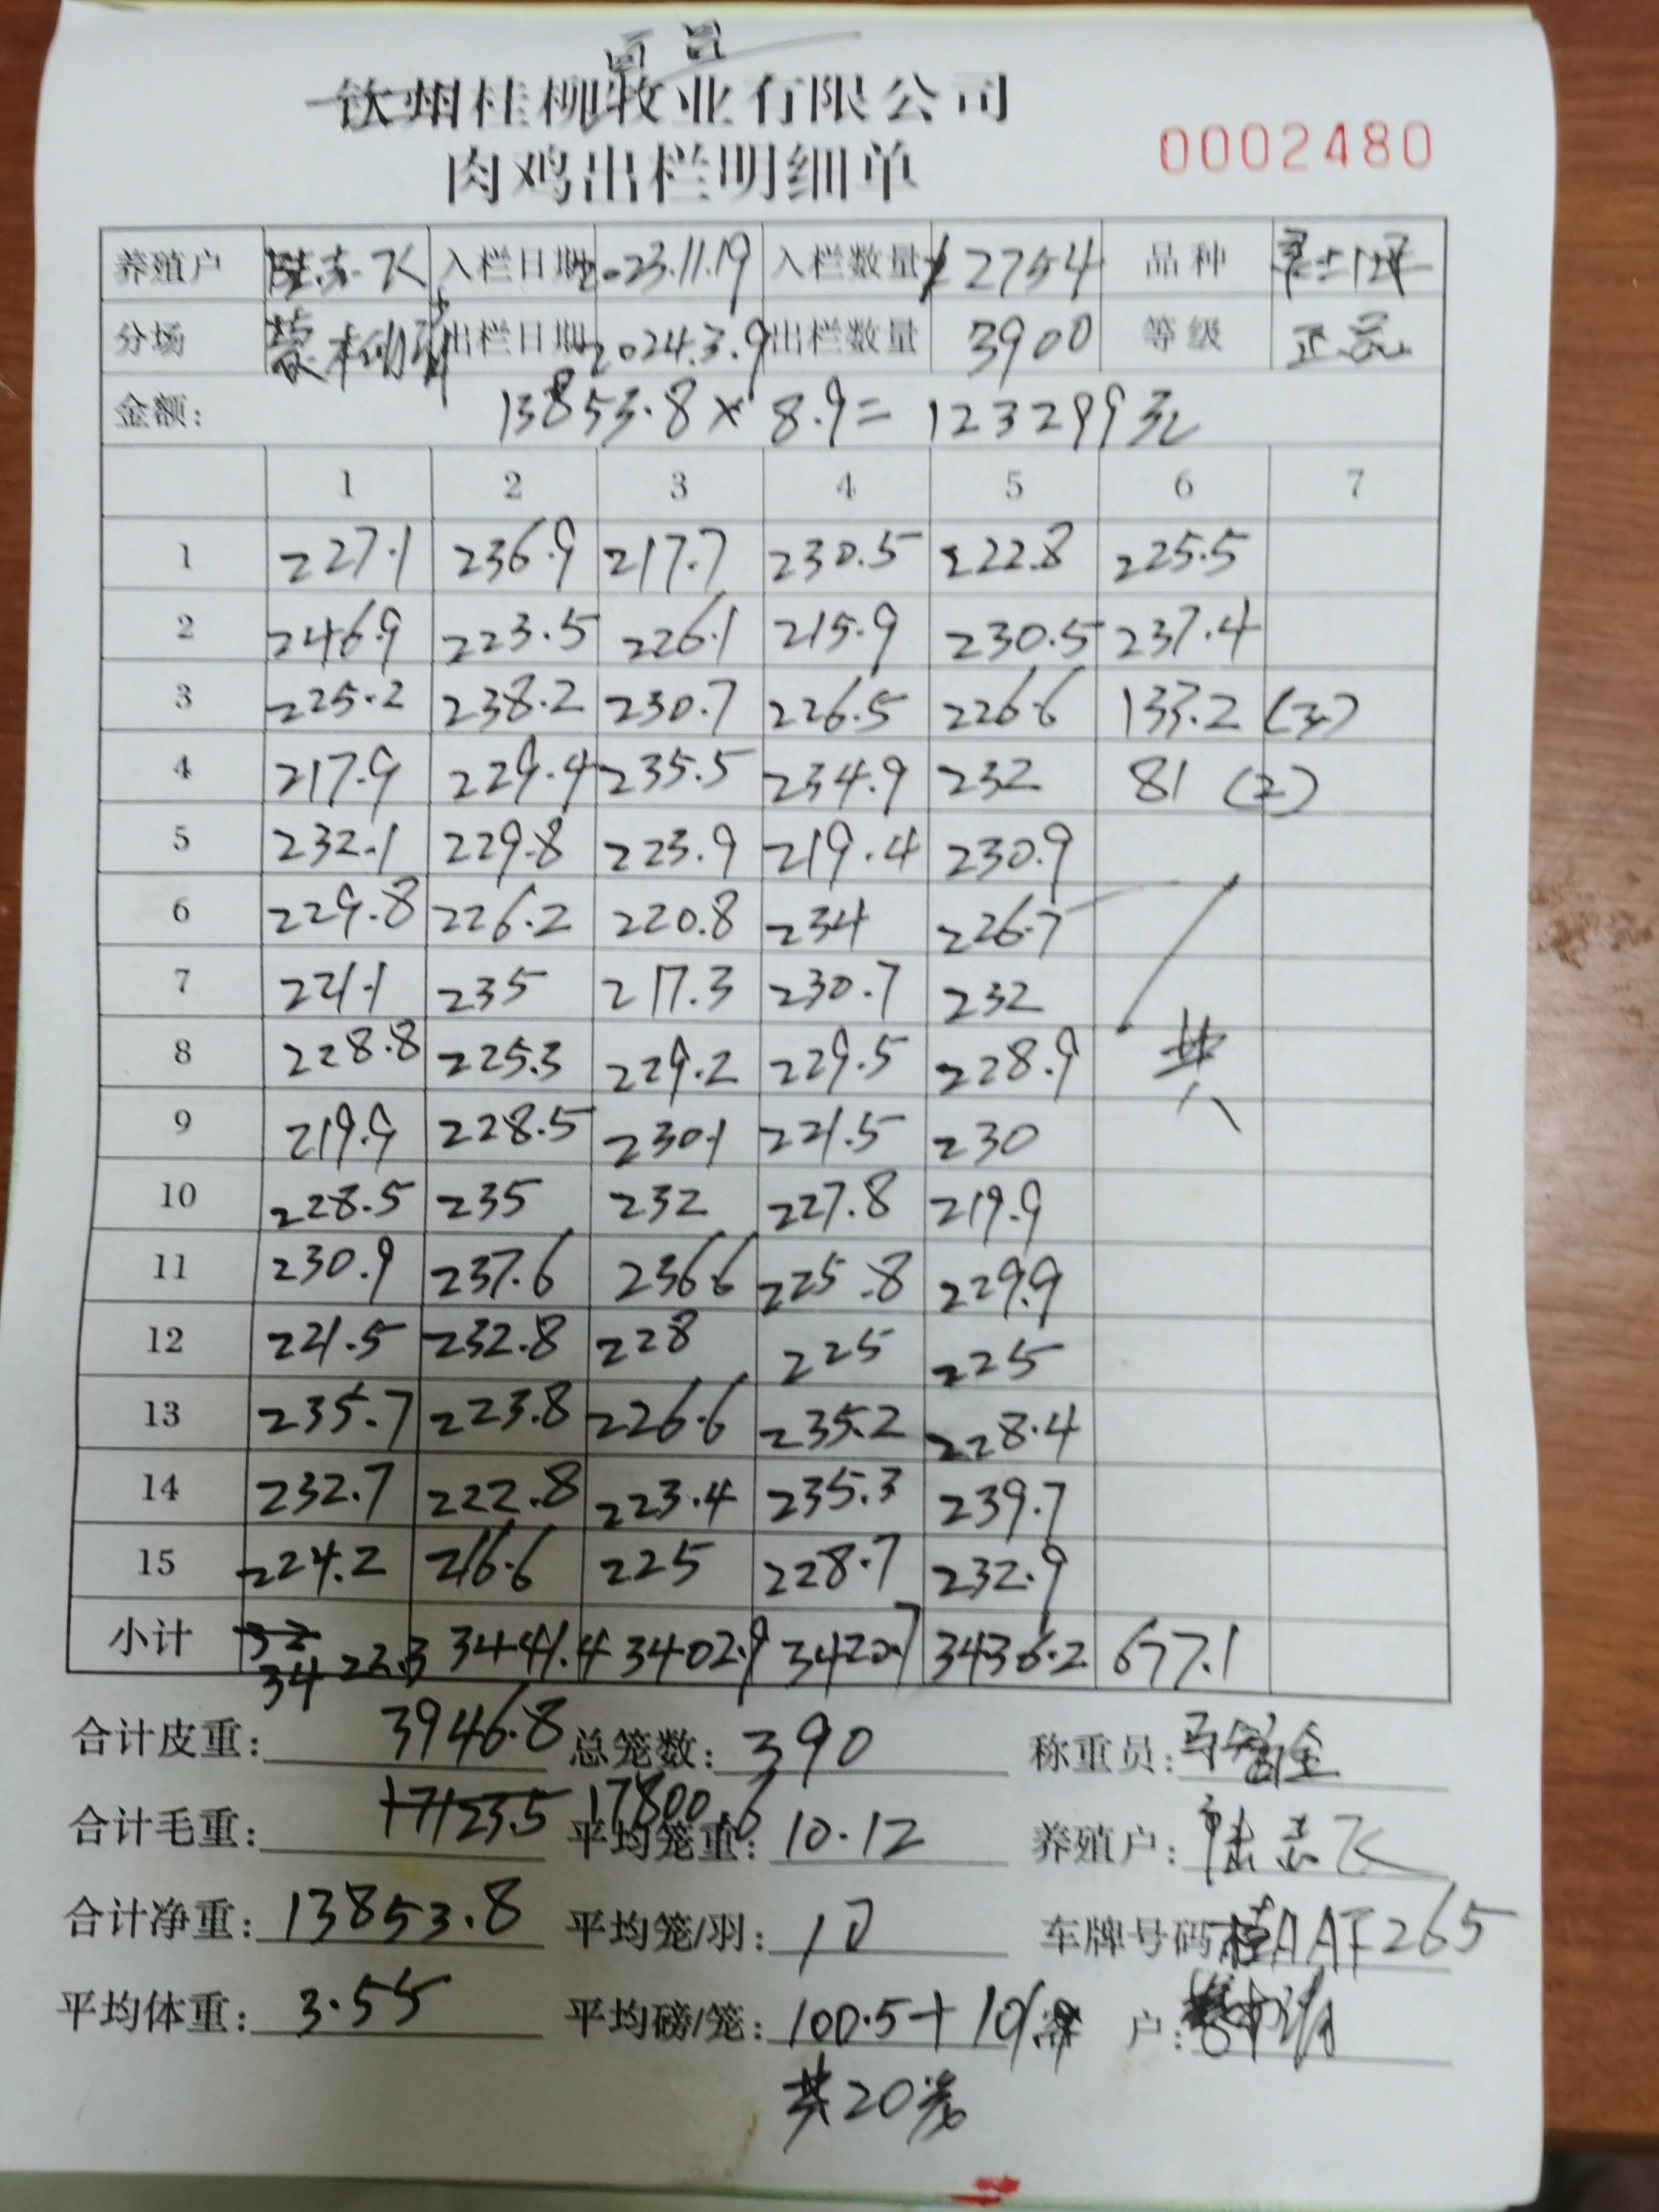 钦州桂柳牧业有限公司
肉鸡出栏明细单
0002480
养殖户 陆志飞 入栏日期 2023.11.19 入栏数量 12754 品种
分场 出栏日期 2024.3.9 出栏数量 3900 等级 正品
金额: 13853.8×8.9=123299元
1 2 3 4 5 6 7
1 227.1 236.9 217.7 230.5 222.8 225.5
2 246.9 223.5 226.1 215.9 230.5 237.4
3 225.2 238.2 230.7 226.5 226.6 133.2 (3)
4 217.9 229.4 235.5 234.9 232 81 (2)
5 232.1 229.8 223.9 219.4 230.9
6 229.8 226.2 220.8 234 226.7
7 221.1 235 217.3 230.7 232
8 228.8 225.3 229.2 229.5 228.9 共
9 219.9 228.5 230.1 221.5 230
10 228.5 235 232 227.8 219.9
11 230.9 237.6 236.6 225.8 229.9
12 221.5 232.8 228 225 225
13 235.7 223.8 226.6 235.2 228.4
14 232.7 222.8 223.4 235.3 239.7
15 224.2 216.6 225 228.7 232.9
小计 3422.3 3441.4 3402.9 3420.7 3436.2 677.1
合计皮重: 3946.8 总笼数: 390 称重员:
合计毛重: 17123.5 17800.6 平均笼重: 10.12 养殖户: 陆志飞
合计净重: 13853.8 平均笼/羽: 10 车牌号码 桂AAF265
平均体重: 3.55 平均磅/笼: 100.5+10% 客户:
共20岁